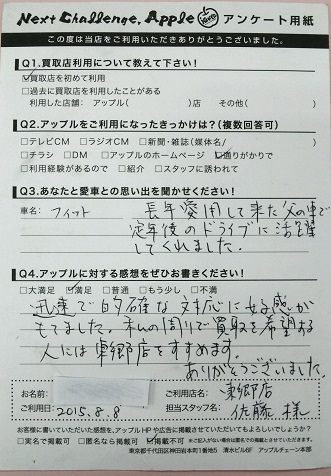 Next Challenge, Apple アンケート用紙
この度は当店をご利用いただきありがとうございました。
Q1.買取店利用について教えて下さい!
☑買取店を初めて利用
□過去に買取店を利用したことがある
利用した店舗: アップル( )店 その他( )
Q2.アップルをご利用になったきっかけは?(複数回答可)
□テレビCM □ラジオCM □新聞・雑誌(媒体名/ )
□チラシ □DM □アップルのホームページ ☑通りがかりで
□利用経験があるので □紹介 □スタッフに誘われて
Q3.あなたと愛車との思い出を聞かせください!
車名: フィット
長年愛用して来た父の車で
定年後のドライブに活躍
してくれました。
Q4.アップルに対する感想をぜひお書きください!
□大満足 ☑満足 □普通 □もう少し □不満
迅速で的確な対応に好感が
もてました。私の周りで買取を希望する
人には東郷店をすすめます。
ありがとうございました。
お名前:
ご利用店名: 東郷店
ご利用日: 2015.8.8
担当スタッフ名: 佐藤 様
お客様に書いていただいた感想を、アップルHPや広告に掲載させていただいてもよろしいでしょうか?
□実名で掲載可 □匿名なら掲載可 □掲載不可
東京都千代田区神田岩本町1番地5 清水ビル6F アップルチェーン本部